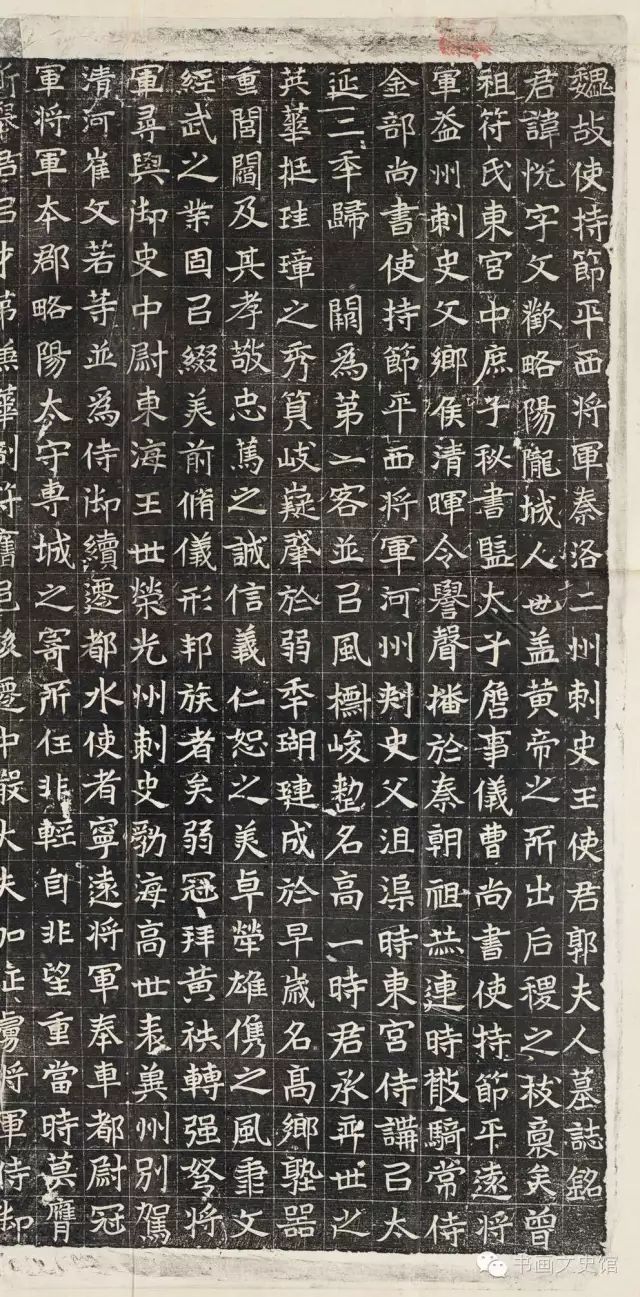 魏故使持節平西將軍秦洛二州刺史王使君郭夫人墓誌銘
君諱悅字文歡略陽隴城人也蓋黃帝之所出后稷之枝裔矣曾
祖符氏東宮中庶子秘書監太子詹事儀曹尚書使持節平遠將
軍益州刺史父鄉侯清暉令譽聲播於秦朝祖恭連時散騎常侍
金部尚書使持節平西將軍河州刾史父沮渠時東宮侍講召太
延二秊歸 闕爲第一客並召風櫄峻懃名高一時君承弈世之
英華挺珪璋之秀質岐嶷肇於弱秊瑚璉成於早歲名高鄉塾器
重閭閻及其孝敬忠萬之誠信義仁恕之美卓犖雄儁之風稟文
經武之業固召綴美前脩儀形邦族者矣弱冠拜黃袟轉强弩將
軍尋與御史中尉東海王世榮光州刺史勃海高世表兾州別駕
清河崔文若等並爲侍御續遷都水使者寧遠將軍奉車都尉冠
軍將軍本郡略陽太守專城之寄所任非輕自非望重當時莫膺
斯舉君召才苐兼華剖符舊邑後遷中散大夫加征虜將軍侍御
书画文史馆